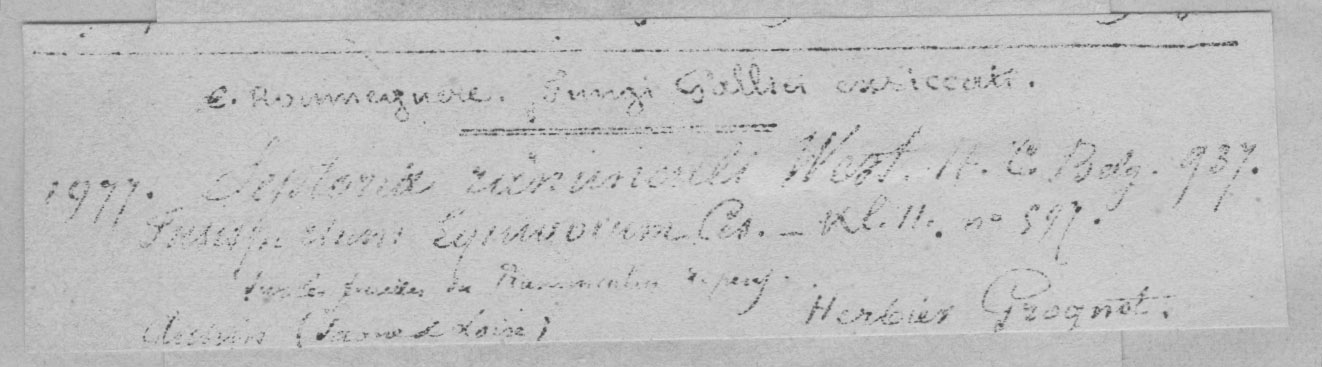 C. Roumeguère. Fungi Gallici exsiccati.
1977. Septoria ranunculi West. H. C. Belg. 937.
Fusisporium Equinorum Ces. – Kl. II. n° 597.
sur les feuilles du Ranunculus repens.
(Saone & Loire) Herbier Grognot.